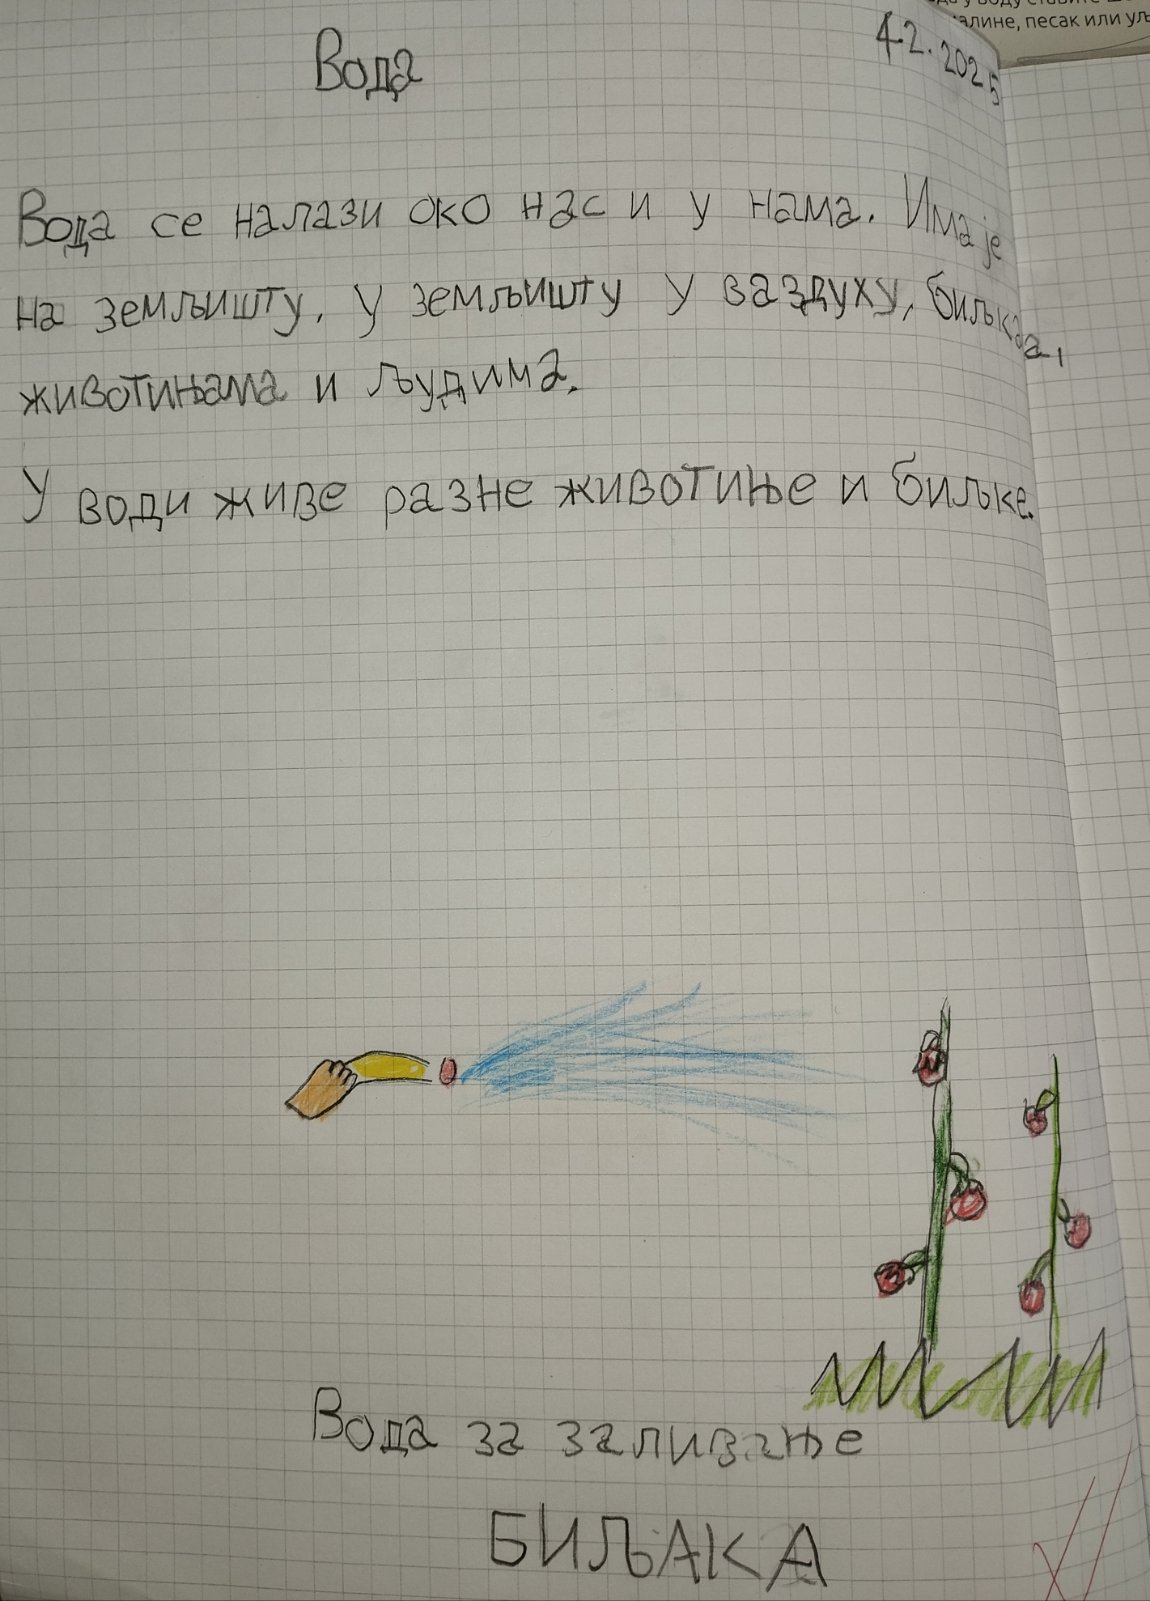 да у воду ставите
малине, песак или уљ
4.2.2025
Вода
Вода се налази око нас и у нама. Има је
на земљишту, у земљишту у ваздуху, биљкаа,
животињама и људима.
У води живе разне животиње и биљке.
Вода за заливање
БИЉАКА